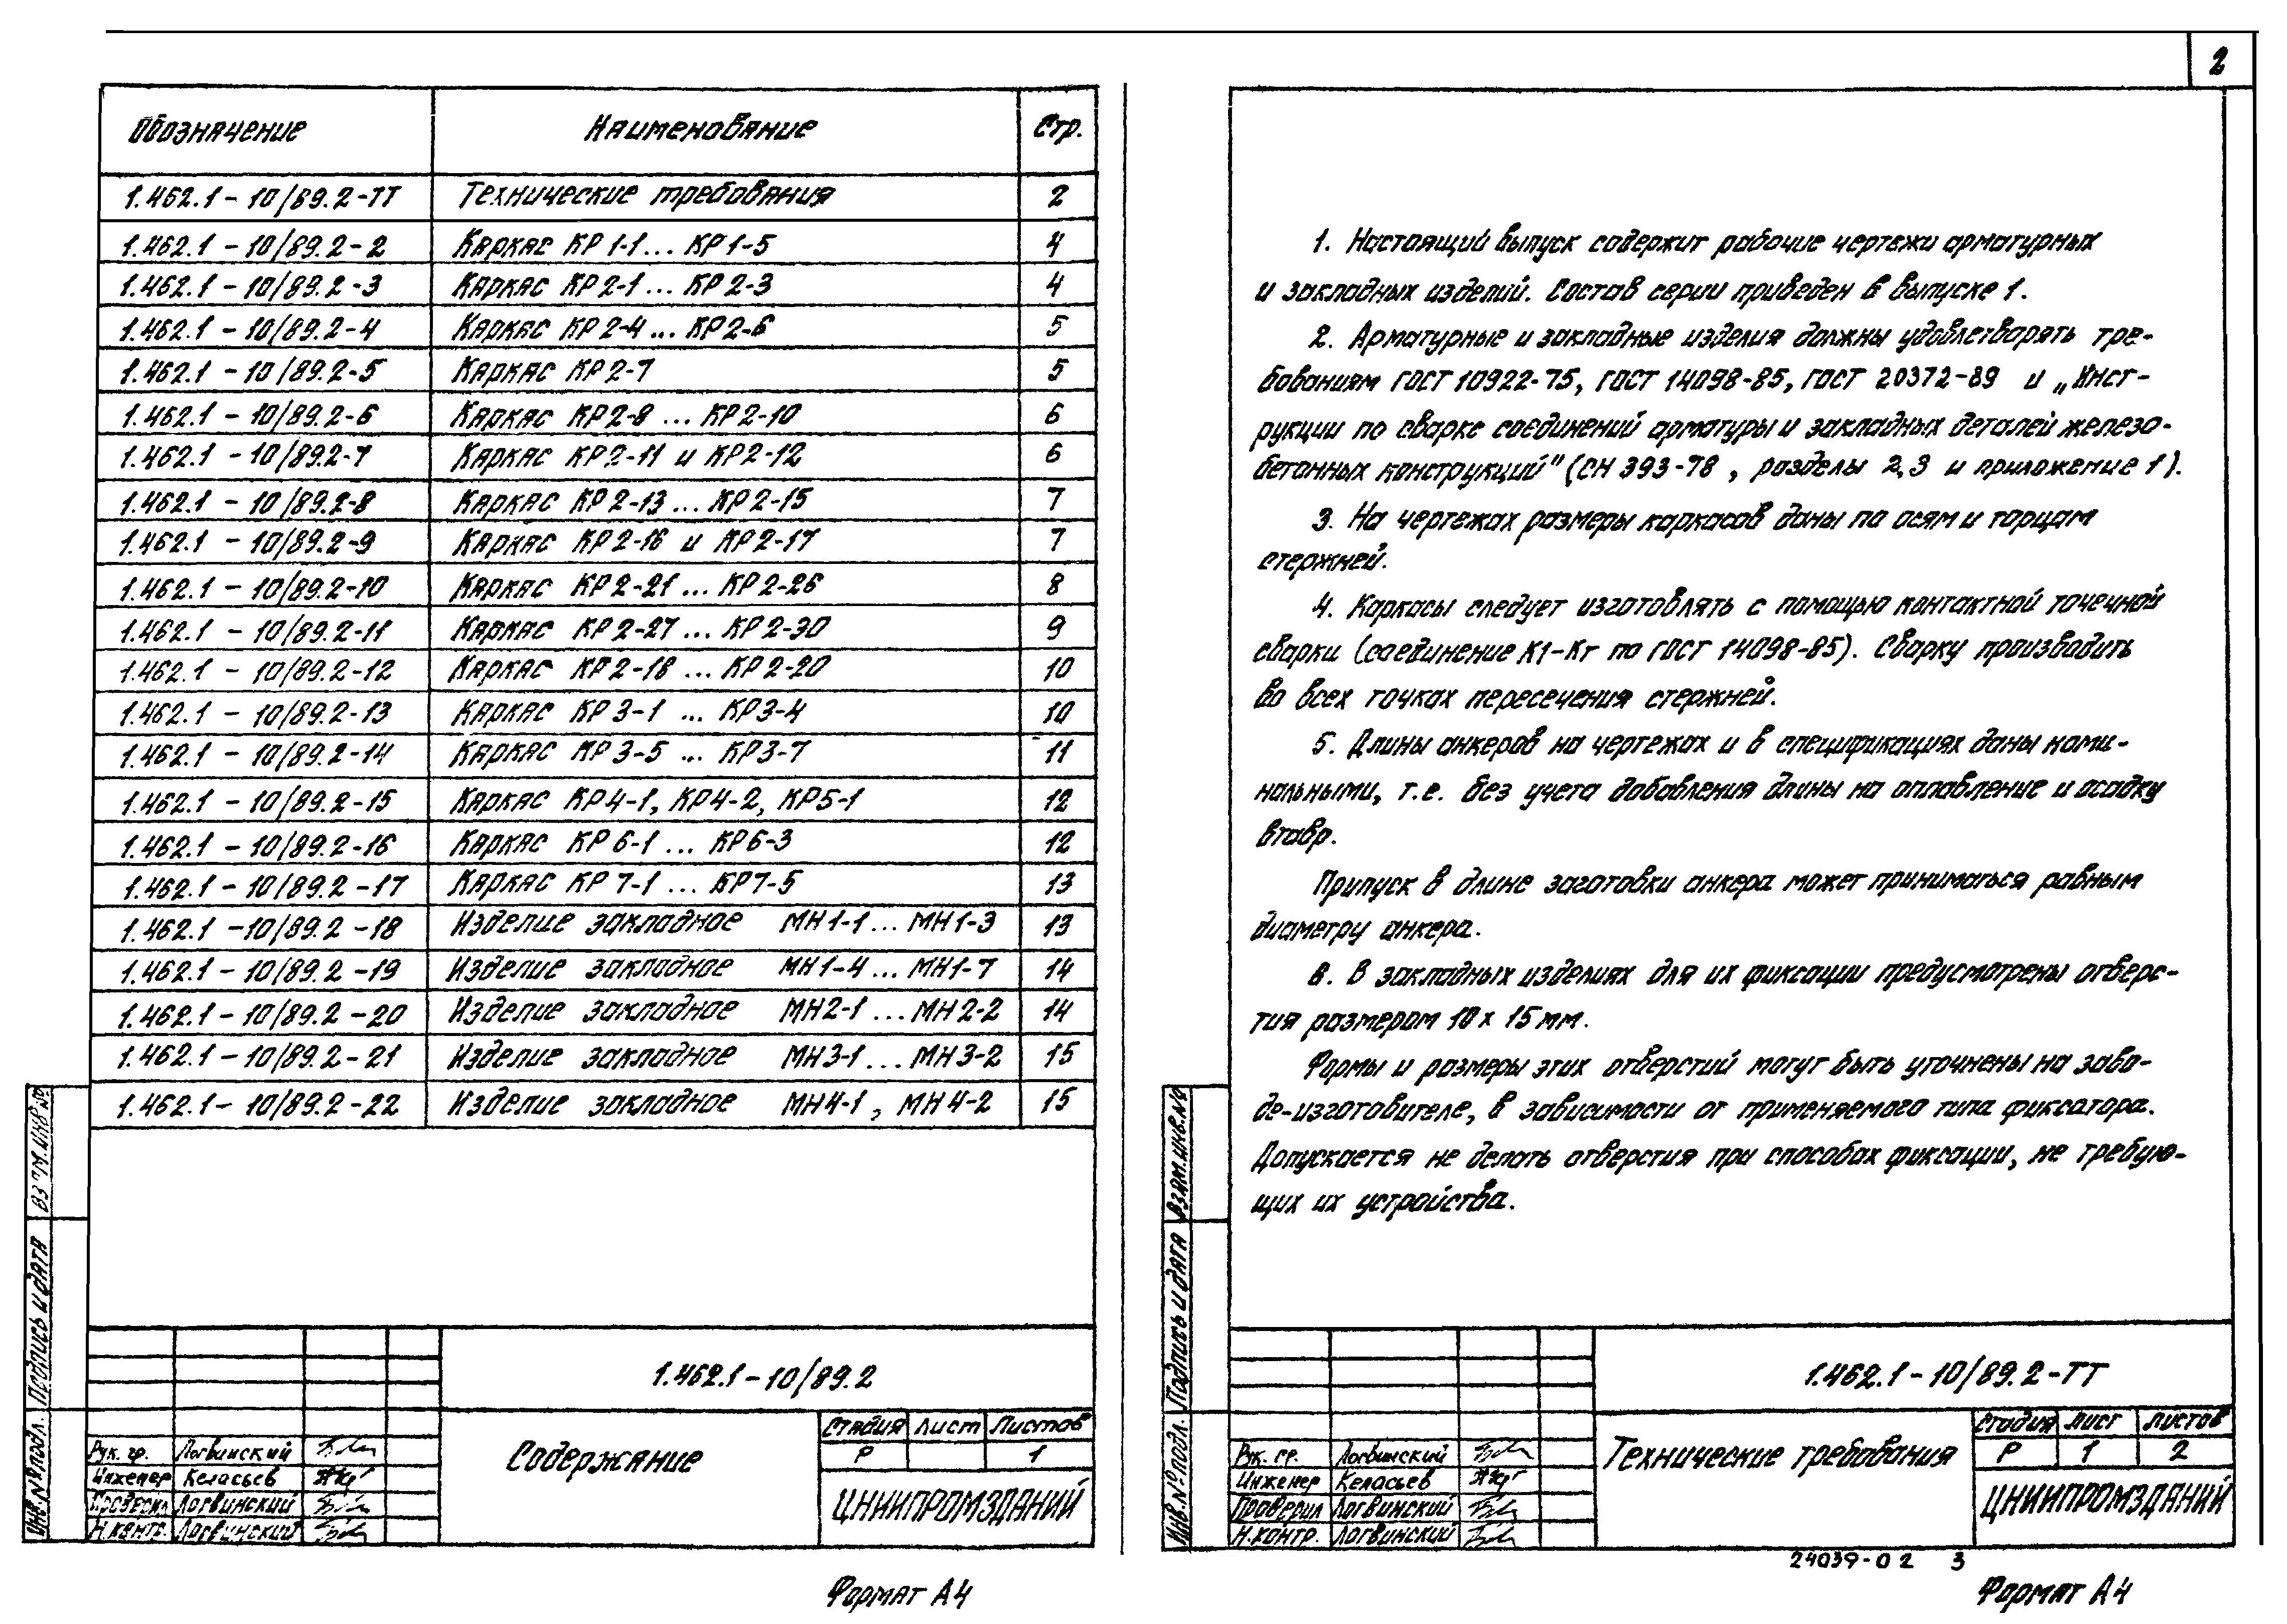 2
Обозначение Наименование Стр.
1.462.1-10/89.2-ТТ Технические требования 2
1.462.1-10/89.2-2 Каркас КР1-1...КР1-5 4
1.462.1-10/89.2-3 Каркас КР2-1...КР2-3 4
1.462.1-10/89.2-4 Каркас КР2-4...КР2-6 5
1.462.1-10/89.2-5 Каркас КР2-7 5
1.462.1-10/89.2-6 Каркас КР2-8...КР2-10 6
1.462.1-10/89.2-7 Каркас КР2-11 и КР2-12 6
1.462.1-10/89.2-8 Каркас КР2-13...КР2-15 7
1.462.1-10/89.2-9 Каркас КР2-16 и КР2-17 7
1.462.1-10/89.2-10 Каркас КР2-21...КР2-26 8
1.462.1-10/89.2-11 Каркас КР2-27...КР2-30 9
1.462.1-10/89.2-12 Каркас КР2-18...КР2-20 10
1.462.1-10/89.2-13 Каркас КР3-1...КР3-4 10
1.462.1-10/89.2-14 Каркас КР3-5...КР3-7 11
1.462.1-10/89.2-15 Каркас КР4-1, КР4-2, КР5-1 12
1.462.1-10/89.2-16 Каркас КР6-1...КР6-3 12
1.462.1-10/89.2-17 Каркас КР7-1...КР7-5 13
1.462.1-10/89.2-18 Изделие закладное МН1-1...МН1-3 13
1.462.1-10/89.2-19 Изделие закладное МН1-4...МН1-7 14
1.462.1-10/89.2-20 Изделие закладное МН2-1...МН2-2 14
1.462.1-10/89.2-21 Изделие закладное МН3-1...МН3-2 15
1.462.1-10/89.2-22 Изделие закладное МН4-1, МН4-2 15
Инв.№ подл. Подпись и дата Взам.инв.№
1.462.1-10/89.2
Содержание
Стадия Лист Листов
Р 1
Рук. гр. Логвинский
Инженер Келасьев
Проверил Логвинский
Н.контр. Логвинский
ЦНИИПРОМЗДАНИЙ
Формат А4
1. Настоящий выпуск содержит рабочие чертежи арматурных
и закладных изделий. Состав серии приведен в выпуске 1.
2. Арматурные и закладные изделия должны удовлетворять тре-
бованиям ГОСТ 10922-75, ГОСТ 14098-85, ГОСТ 20372-89 и „Инст-
рукции по сварке соединений арматуры и закладных деталей железо-
бетонных конструкций" (СН 393-78, разделы 2,3 и приложение 1).
3. На чертежах размеры каркасов даны по осям и торцам
стержней.
4. Каркасы следует изготовлять с помощью контактной точечной
сварки (соединение К1-Кт по ГОСТ 14098-85). Сварку производить
во всех точках пересечения стержней.
5. Длины анкеров на чертежах и в спецификациях даны номи-
нальными, т.е. без учета добавления длины на оплавление и осадку
втавр.
Припуск в длине заготовки анкера может приниматься равным
диаметру анкера.
6. В закладных изделиях для их фиксации предусмотрены отверс-
тия размером 10х15 мм.
Формы и размеры этих отверстий могут быть уточнены на заво-
де-изготовителе, в зависимости от применяемого типа фиксатора.
Допускается не делать отверстия при способах фиксации, не требую-
щих их устройства.
Инв.№ подл. Подпись и дата Взам.инв.№
1.462.1-10/89.2-ТТ
Технические требования
Стадия Лист Листов
Р 1 2
Рук. гр. Логвинский
Инженер Келасьев
Проверил Логвинский
Н.контр. Логвинский
ЦНИИПРОМЗДАНИЙ
24039-02 3
Формат А4